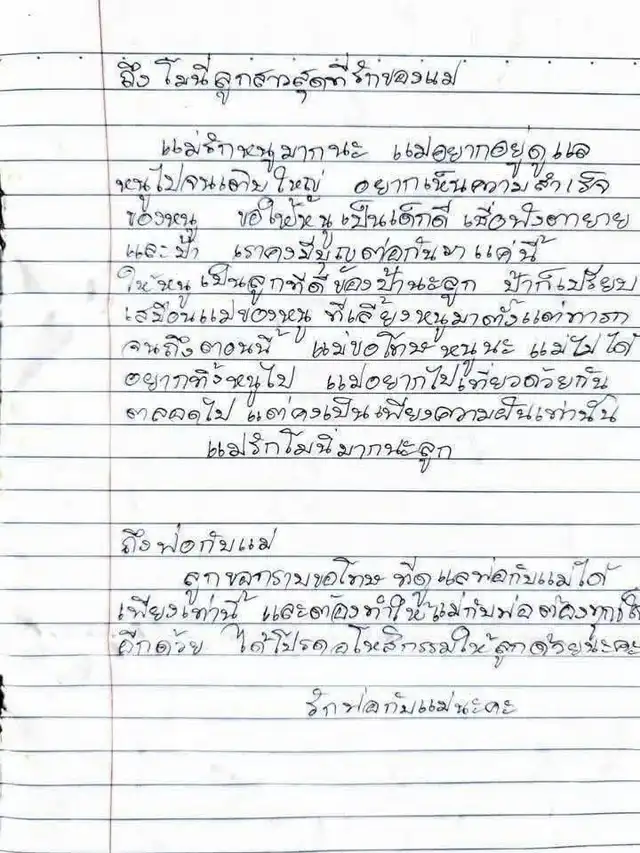 ถึง โมนีลูกสาวสุดที่รักของแม่
แม่รักหนูมากนะ แม่อยากอยู่ดูแล
หนูไปจนเติบใหญ่ อยากเห็นความสำเร็จ
ของหนู ขอให้หนูเป็นเด็กดี เชื่อฟังตายาย
และป้า เราคงมีบุญต่อกันมาแค่นี้
ให้หนูเป็นลูกที่ดีของป้านะลูก ป้าก็เปรียบ
เสมือนแม่ของหนู ที่เลี้ยงหนูมาตั้งแต่ทารก
จนถึงตอนนี้ แม่ขอโทษหนูนะ แม่ไม่ได้
อยากทิ้งหนูไป แม่อยากไปเที่ยวด้วยกัน
ตลอดไป แต่คงเป็นเพียงความฝันเท่านั้น
แม่รักโมนีมากนะลูก
ถึงพ่อกับแม่
ลูกขอกราบขอโทษ ที่ดูแลพ่อกับแม่ได้
เพียงเท่านี้ และต้องทำให้แม่กับพ่อต้องทุกข์ใ
อีกด้วย ได้โปรดอโหสิกรรมให้ลูกด้วยนะคะ
รักพ่อกับแม่นะคะ